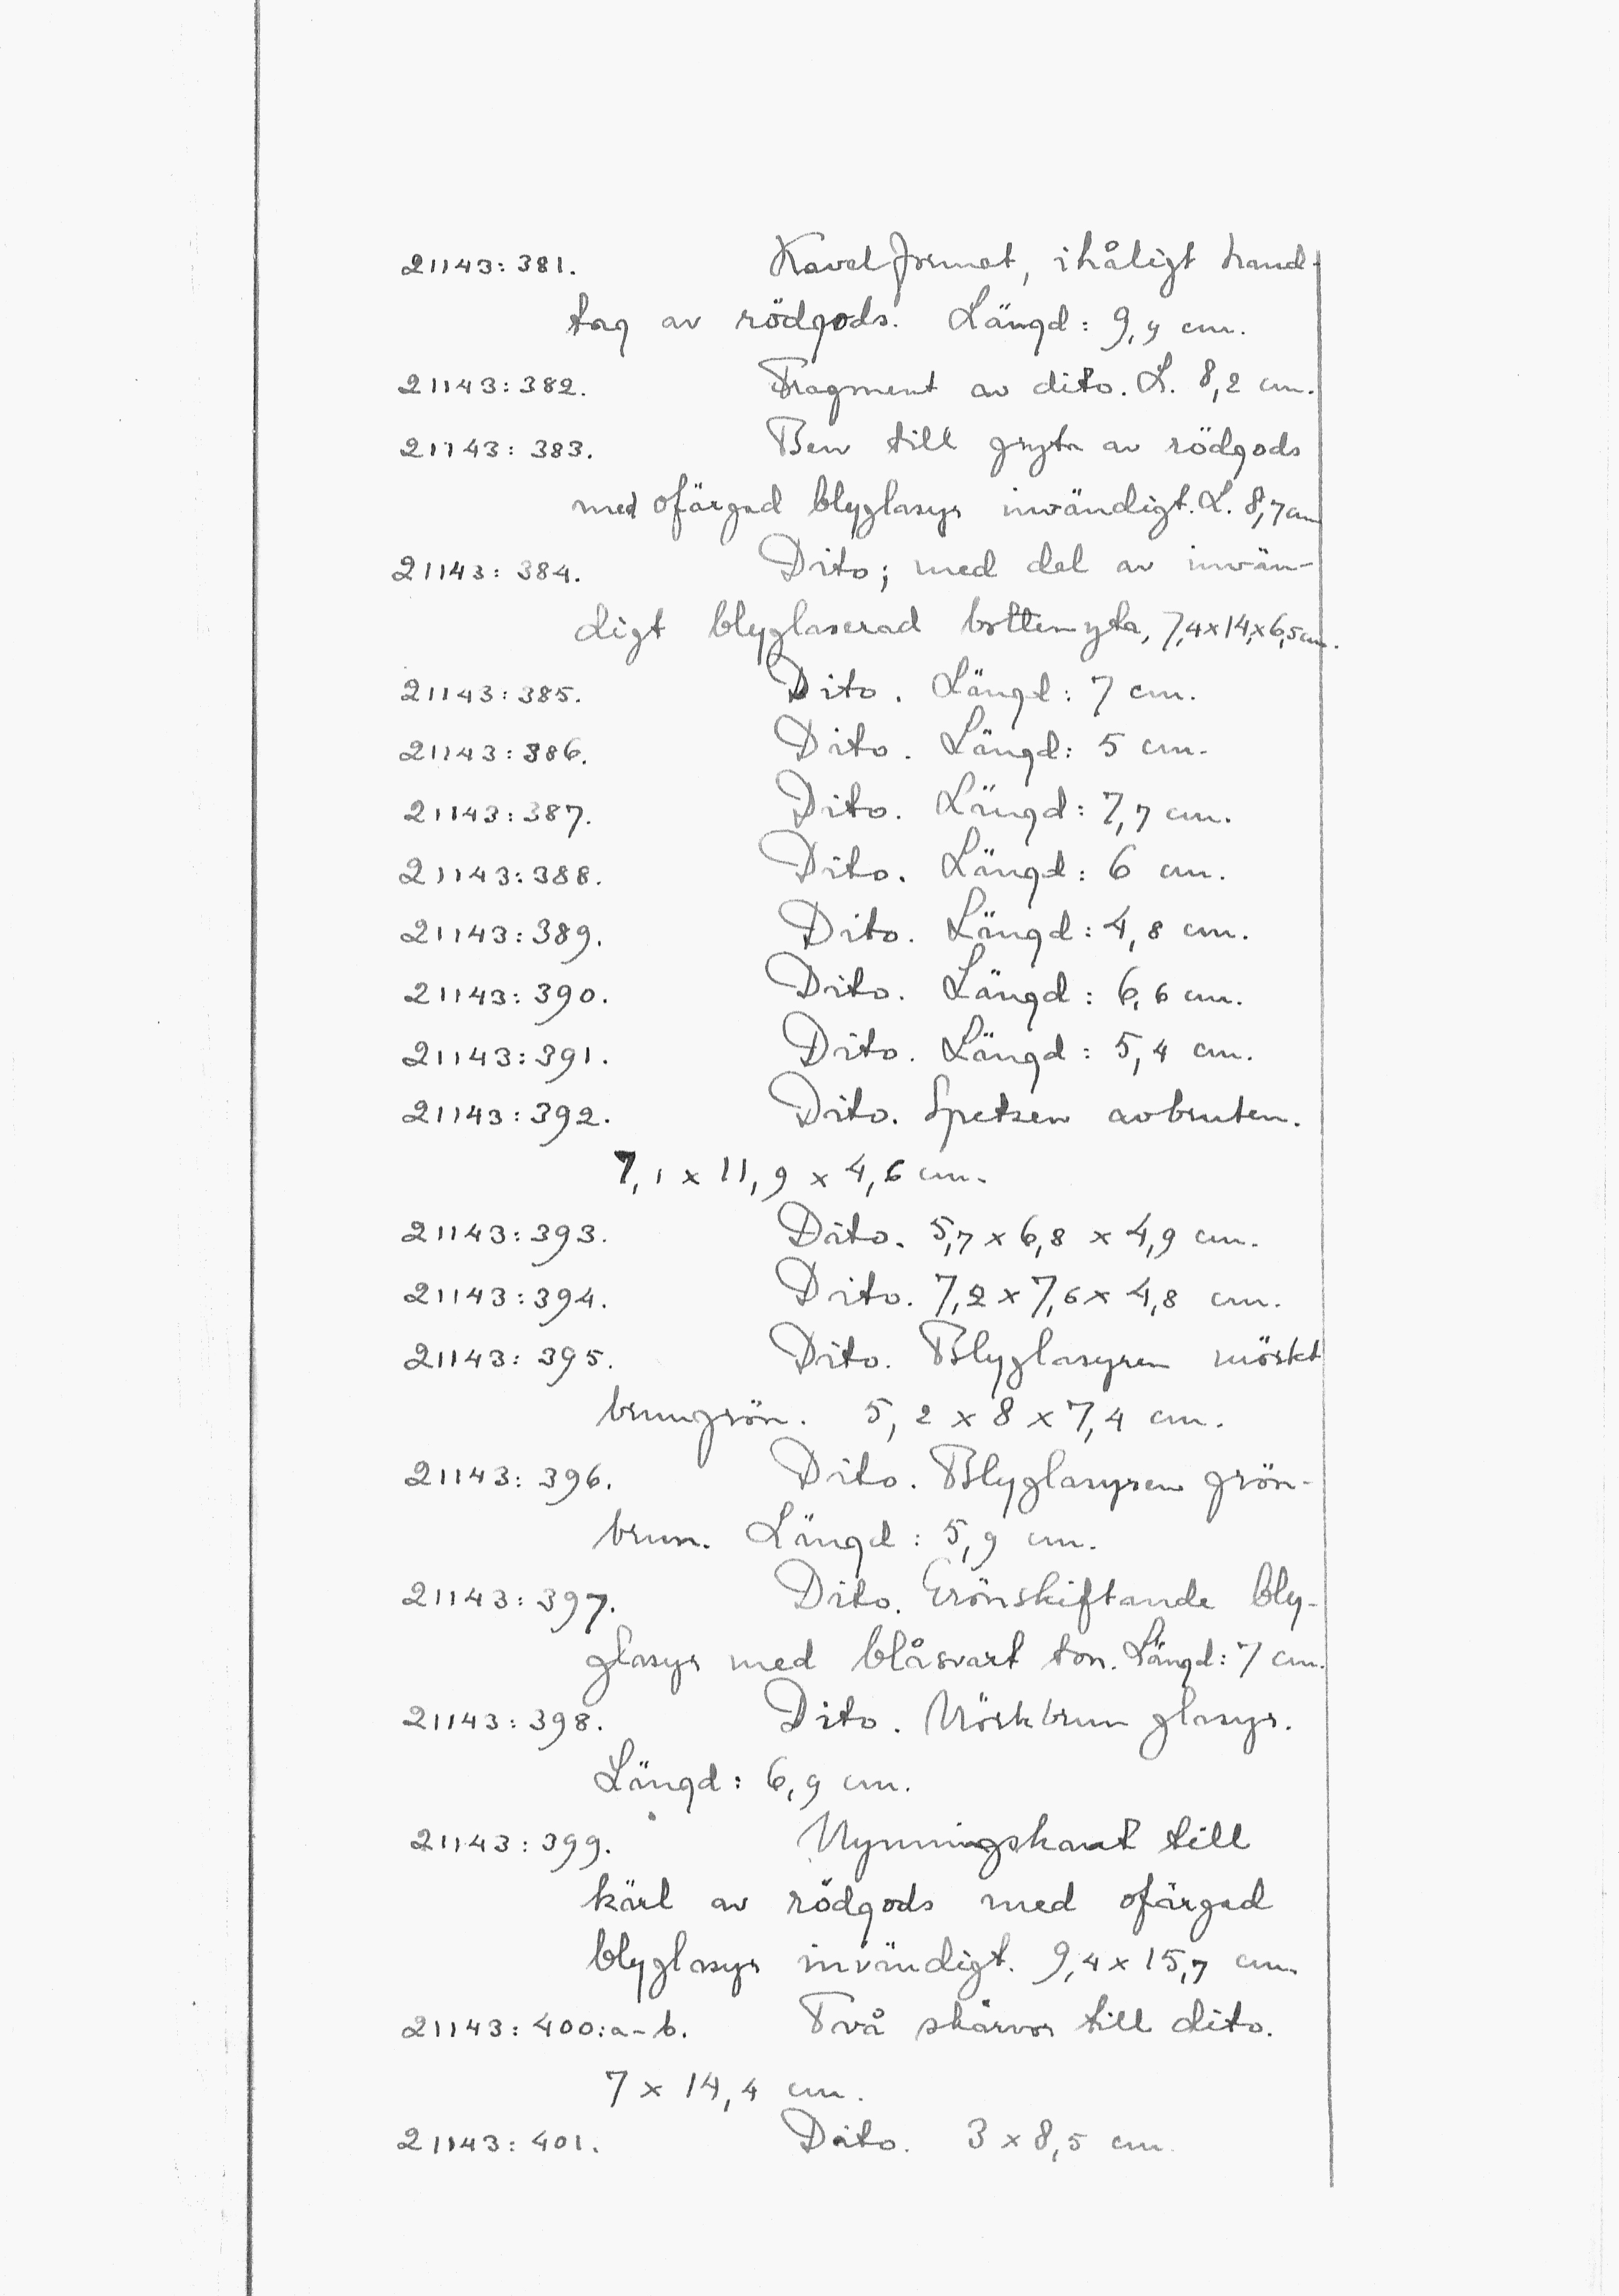 21143:381. Kavelformat, ihåligt hand-
tag av rödgods. Längd: 9,4 cm.
21143:382. Fragment av dito. L. 8,2 cm.
21143:383. Ben till gryta av rödgods
med ofärgad blyglasyr invändigt. L. 8,7 cm
21143:384. Dito; med del av invän-
digt blyglaserad bottenyta, 7,4x14,x6,5 cm.
21143:385. Dito. Längd: 7 cm.
21143:386. Dito. Längd: 5 cm.
21143:387. Dito. Längd: 7,7 cm.
21143:388. Dito. Längd: 6 cm.
21143:389. Dito. Längd: 4,8 cm.
21143:390. Dito. Längd: 6,6 cm.
21143:391. Dito. Längd: 5,4 cm.
21143:392. Dito. Spetsen avbruten.
7,1 x 11,9 x 4,6 cm.
21143:393. Dito. 5,7 x 6,8 x 4,9 cm.
21143:394. Dito. 7,2 x 7,6 x 4,8 cm.
21143:395. Dito. Blyglasyren mörkt
brungrön. 5,2 x 8 x 7,4 cm.
21143:396. Dito. Blyglasyren grön-
brun. Längd: 5,9 cm.
21143:397. Dito. Grönskiftande bly-
glasyr med blåsvart ton. Längd: 7 cm.
21143:398. Dito. Mörkbrun glasyr.
Längd: 6,9 cm.
21143:399. Mynningskant till
kärl av rödgods med ofärgad
blyglasyr invändigt. 9,4 x 15,7 cm.
21143:400:a-b. Två skärvor till dito.
7 x 14,4 cm.
21143:401. Dito. 3 x 8,5 cm.